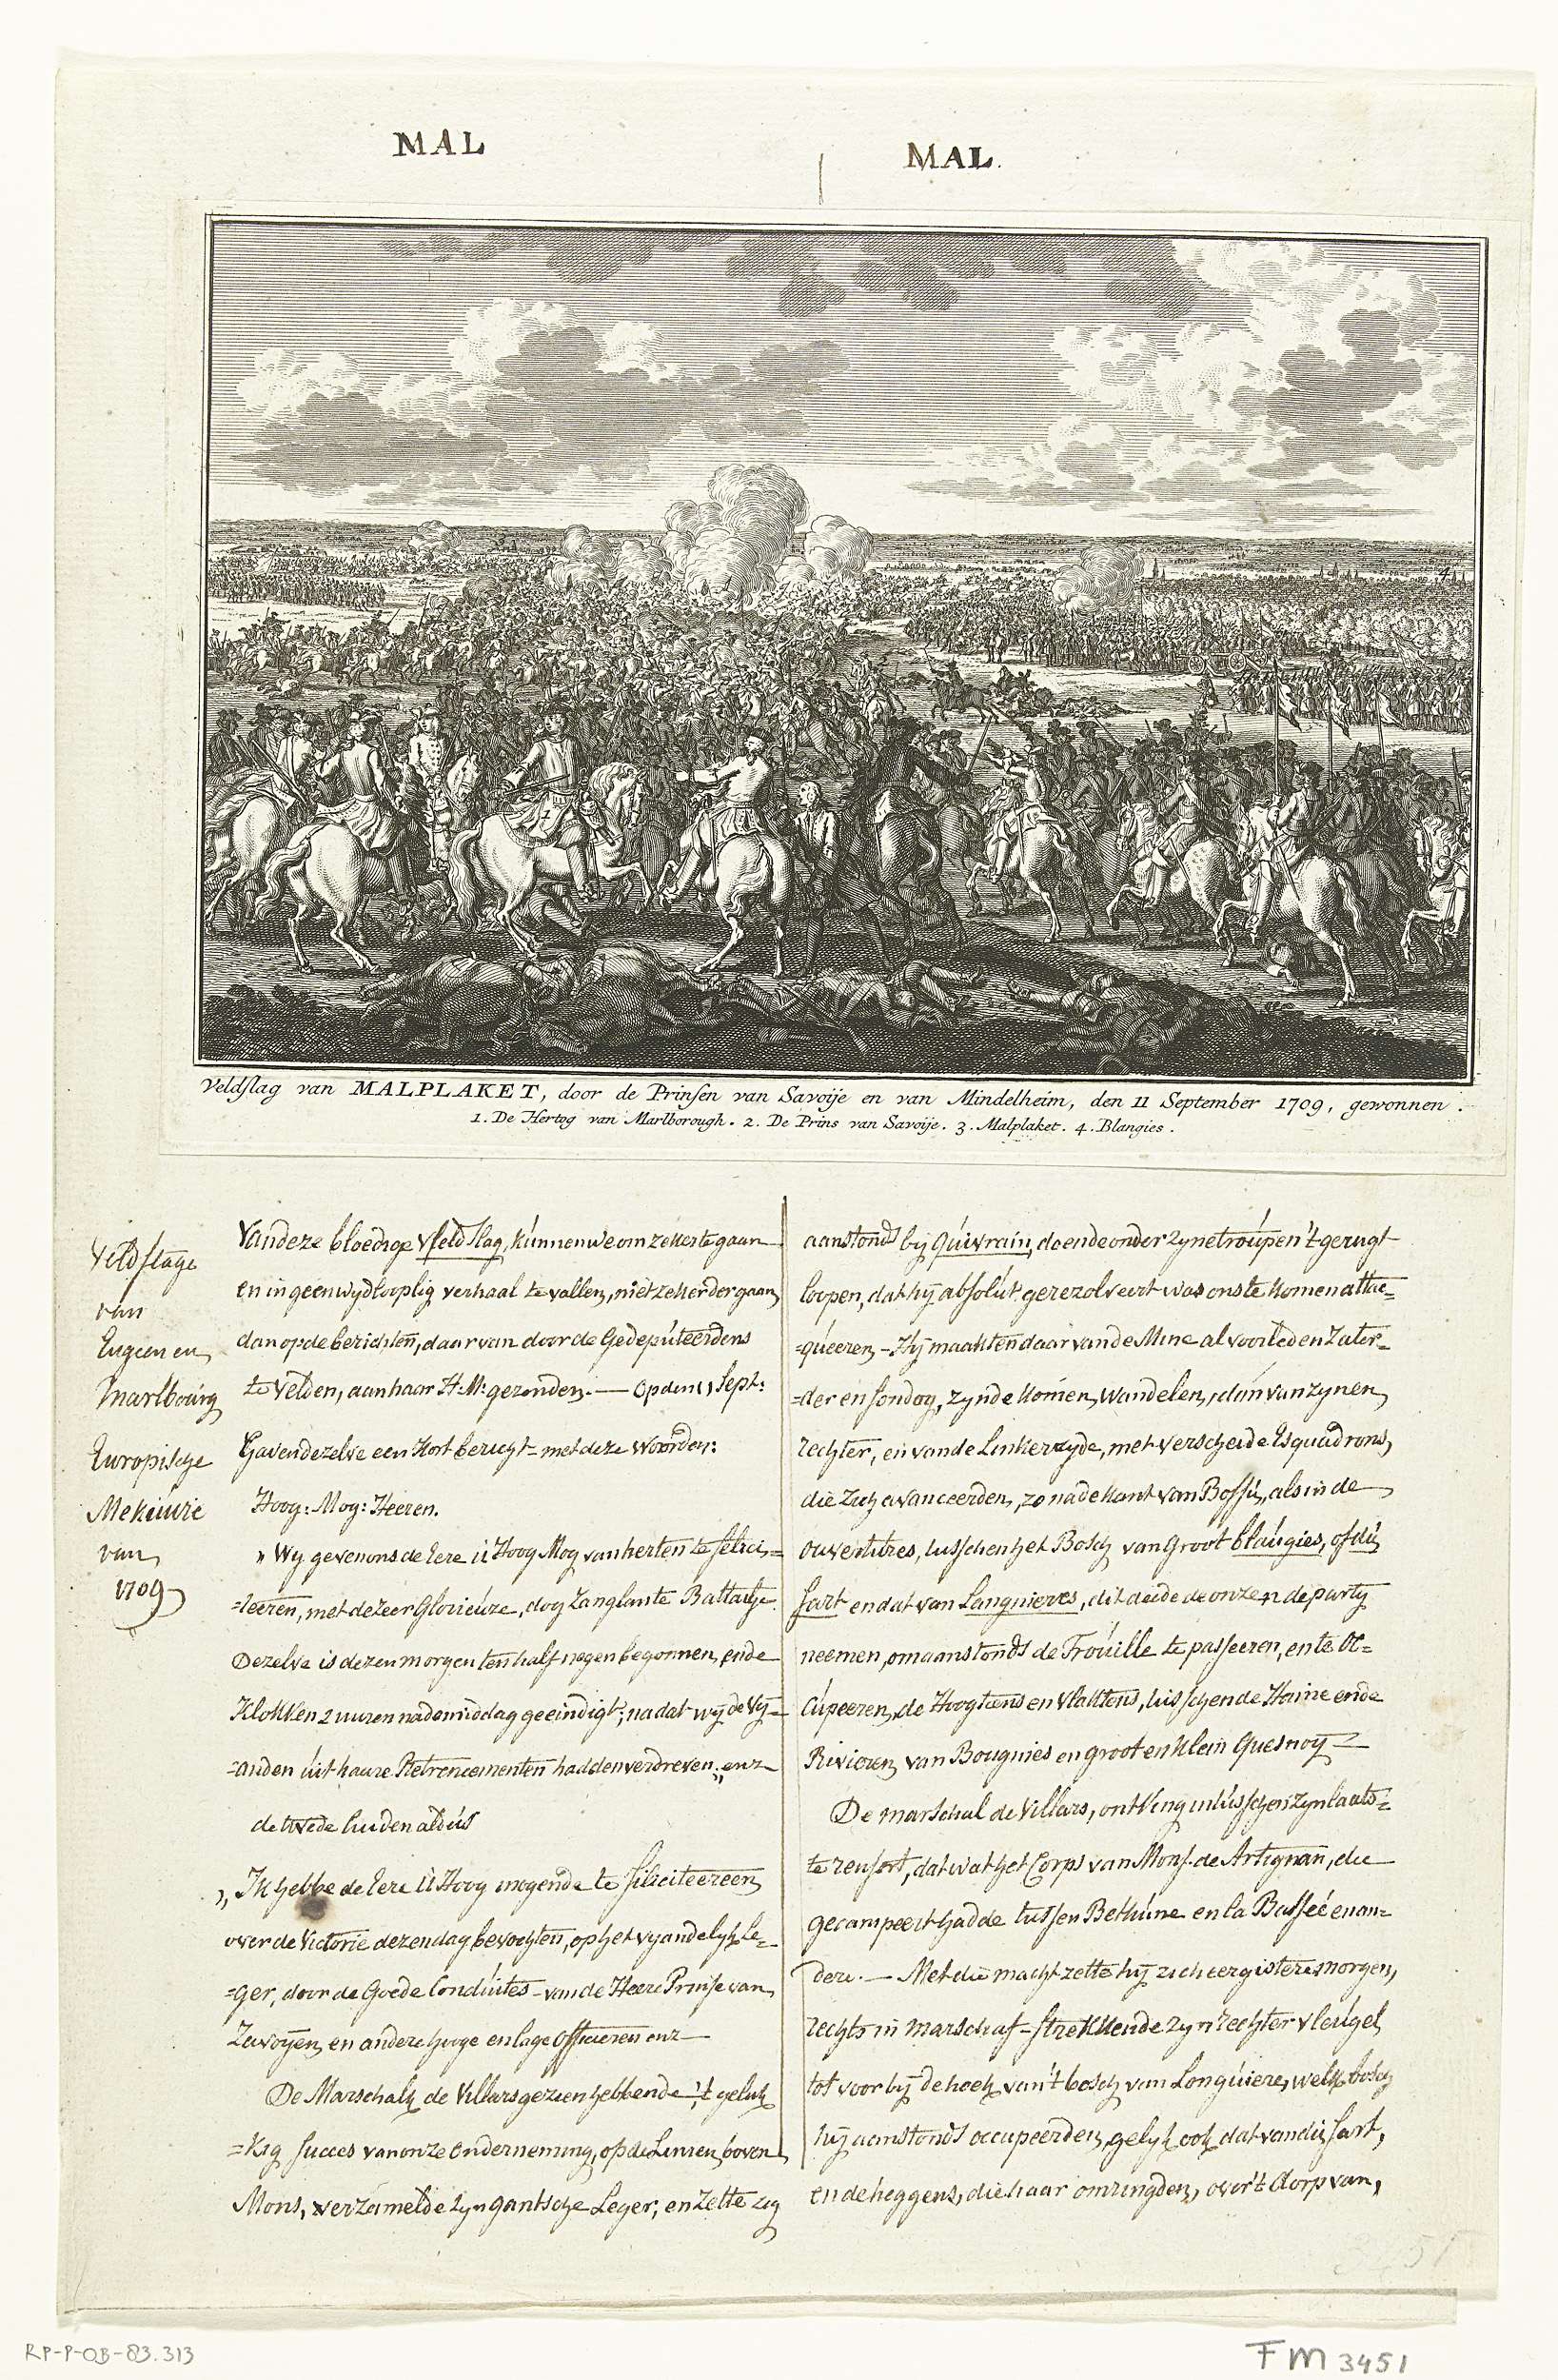 MAL
MAL.
4
1
2
Veldslag van MALPLAKET, door de Prinsen van Savoije en van Mindelheim, den 11 September 1709, gewonnen.
1. De Hertog van Marlborough. 2. De Prins van Savoije. 3. Malplaket. 4. Blangies.
Veldslage
van
Eugeen en
Marlbourg
Europische
Mekuurie
van
1709
Van deze bloedige Veldslag, kunnen we om zekerste gaan
en in geen wydlooplig verhaal te vallen, niet zekerder gaan
dan op de berichten, daar van door de Gedeputeerdens
te Velden, aan haar H: M: gezonden. — Op den 11 Sept:
Gaven dezelve een Kort berigt = met deze Woorden:
Hoog: Mog: Heeren.
„ Wy geven ons de Eere U Hoog Mog van herten te felici=
=teeren, met de zeer Glorieuze, dog Zanglante Battailje.
Dezelve is dezen morgen ten half negen begonnen, ende
Klokken 2 uuren nademiddag geeindigt; na dat wy de Vy=
=anden uit haare Retrencementen hadden verdreven„ enz
de twede luiden aldus
„ Ik hebbe de Eere U Hoog mogende te filiciteereen
over de Victorie dezen dag bevochten, op het vyandelyk Le=
=ger, door de Goede Conduites – van de Heere Prinse van
Zavoyen, en andere hooge en lage Officieren enz —
De Marschalk de Villars gezien hebbende 't geluk
=kig succes van onze onderneming, op de Linien boven
Mons, verzamelde zyn gantsche Leger, en Zette zig
aanstonds by Quivrain, doende onder zyne troupen 't gerugt
loopen, dat hy absolut gerezolveert was ons te komen attac=
=queeren, – Hy maakten daar van de Mine al voorleden Zater=
=der en sondag, zynde komen Wandelen, dan van zynen
rechter, en van de Linkerzyde, met verscheide Esquadrons,
die zich avanceerden, zo na de kant van Bossu, als in de
ouvertures, tusschen het Bosch van Groot blaugies, of du
sart en dat van Langnieres, dit deede de onzen de party
neemen, om aanstonds de Trouille te passeeren, en te Oc=
Cupeeren, de Hoogtens en Vlaktens, tusschen de Haine ende
Rivieren van Bougnies en groot en klein Quesnoy —
De Marschal de Villars, ontving intusschen zyn laats=
te renfort, dat wat het Corps van Mons. de Artignan, die
gecampeert hadde tussen Bethune en la Bassée en an=
dere. — Met die macht zette hy zich eergisteren morgen,
rechts in marsch af – strekkende zyn rechter vleugel
tot voorby de hoek van 't bosch van Longuiere, welk bosch
hy aanstonds occupeerden, gelyk ook dat van du sart,
en de heggens, die haar omringden, over 't dorp van,
3451
RP-P-OB-83.313
FM 3451